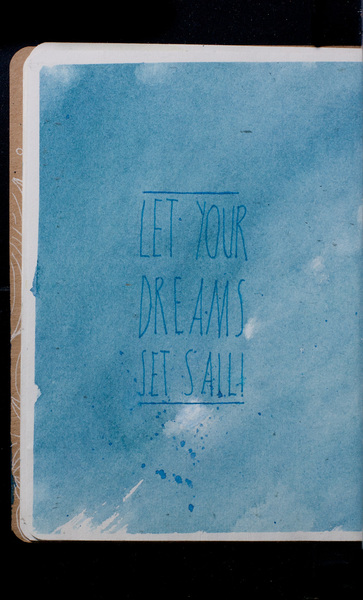 LET YOUR
DREAMS
SET SAIL!